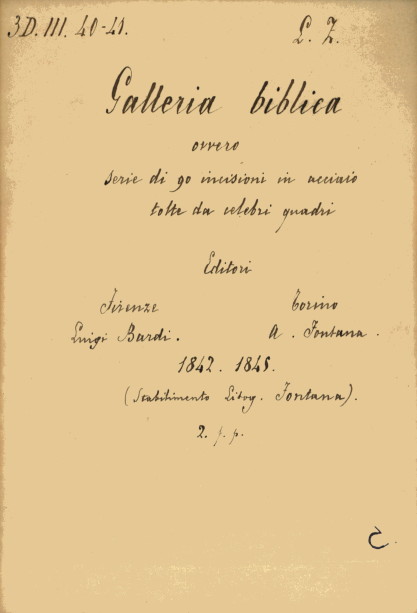 3D. III. 40-41. L. Z.
Galleria biblica
ovvero
serie di 90 incisioni in acciaio
tolte da celebri quadri
Editori
Firenze Torino
Luigi Bardi. A. Fontana.
1842. 1845.
(Stabilimento Litog. Fontana).
2. p. p.